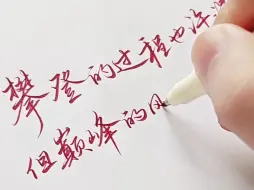 攀登的过程也许
但巅峰的风